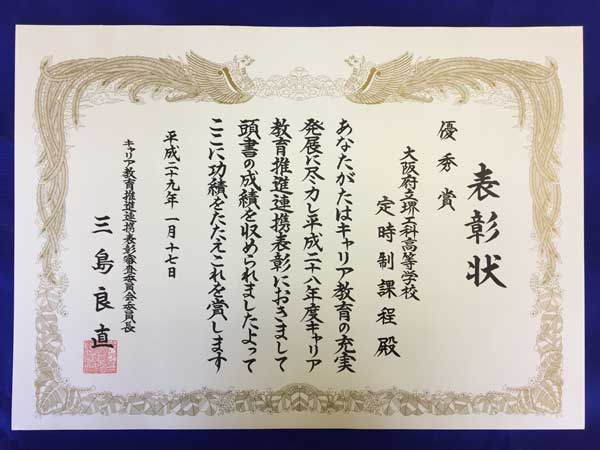 表彰状
優秀賞
大阪府立堺工科高等学校
定時制課程殿
あなたがたはキャリア教育の充実
発展に尽力し平成二十八年度キャリア
教育推進連携表彰におきまして
頭書の成績を収められましたよって
ここに功績をたたえこれを賞します
平成二十九年一月十七日
キャリア教育推進連携表彰審査委員会委員長
三島良直